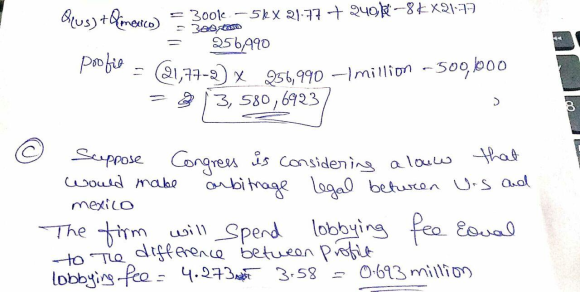 Q(US) + Q(mexico) = 300k - 5k x 21.77 + 240k - 8k x 21.77
= 300,000
= 256,990
Profit = (21,77-2) x 256,990 - 1 million - 500,000
= 3, 580, 6923
C Suppose Congress is considering a law that
would make arbitrage legal between U.S and
mexico
The firm will Spend lobbying fee Equal
to The difference between profit
lobbying fee = 4.273 - 3.58 = 0.693 million